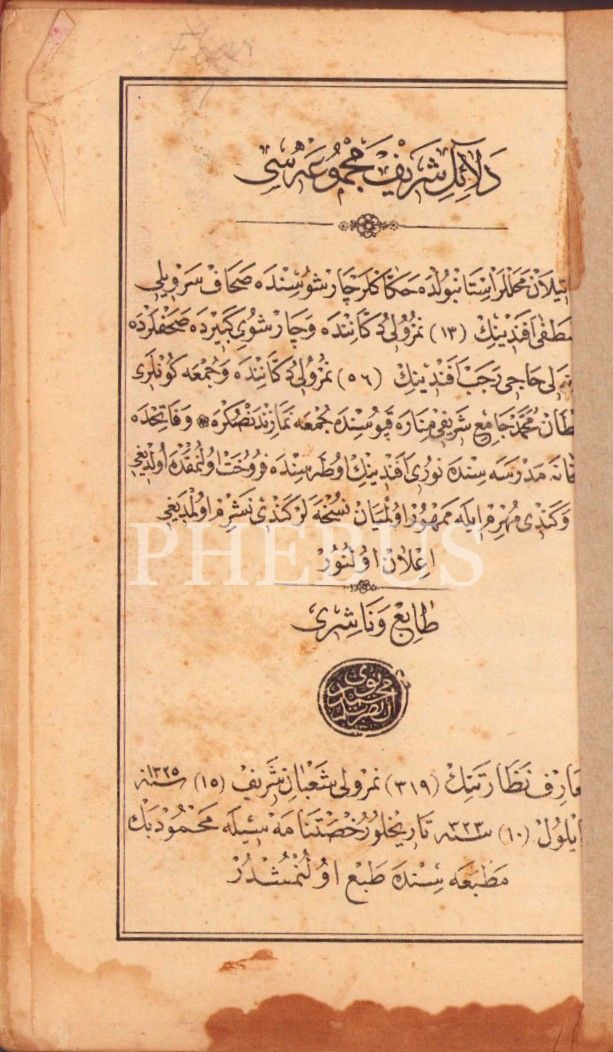 دلائل شریف مجموعه سی
تیلان محللر استانبولده حکاکلر چارشوسنده صحاف سرویلی
مصطفی افندینك (١٣) نمرولی دکاننده و چارشوی کبیرده صحفلرده
لی حاجی رجب افندینك (٥٦) نمرولی دکاننده و جمعه کونلری
طان محمد جامع شریفی مناره قپوسنده جمعه نمازندنصکره و فاتحده
خانه مدرسه سنده نوری افندینك اوطه سنده فروخت اولنمقده اولدیغی
و کندی مهرم ایله ممهور اولمیان نسخه لر کندی نشرم اولمدیغی
اعلان اولنور
PHEBUS
طابع و ناشری
معارف نظارتنك (٣١٩) نمرولی شعبان شریف (١٥) سنه ١٣٢٥
ایلول (١٠) سنه ٣٢٣ تاریخلو رخصتنامه سیله محمود بك
مطبعه سنده طبع اولنمشدر